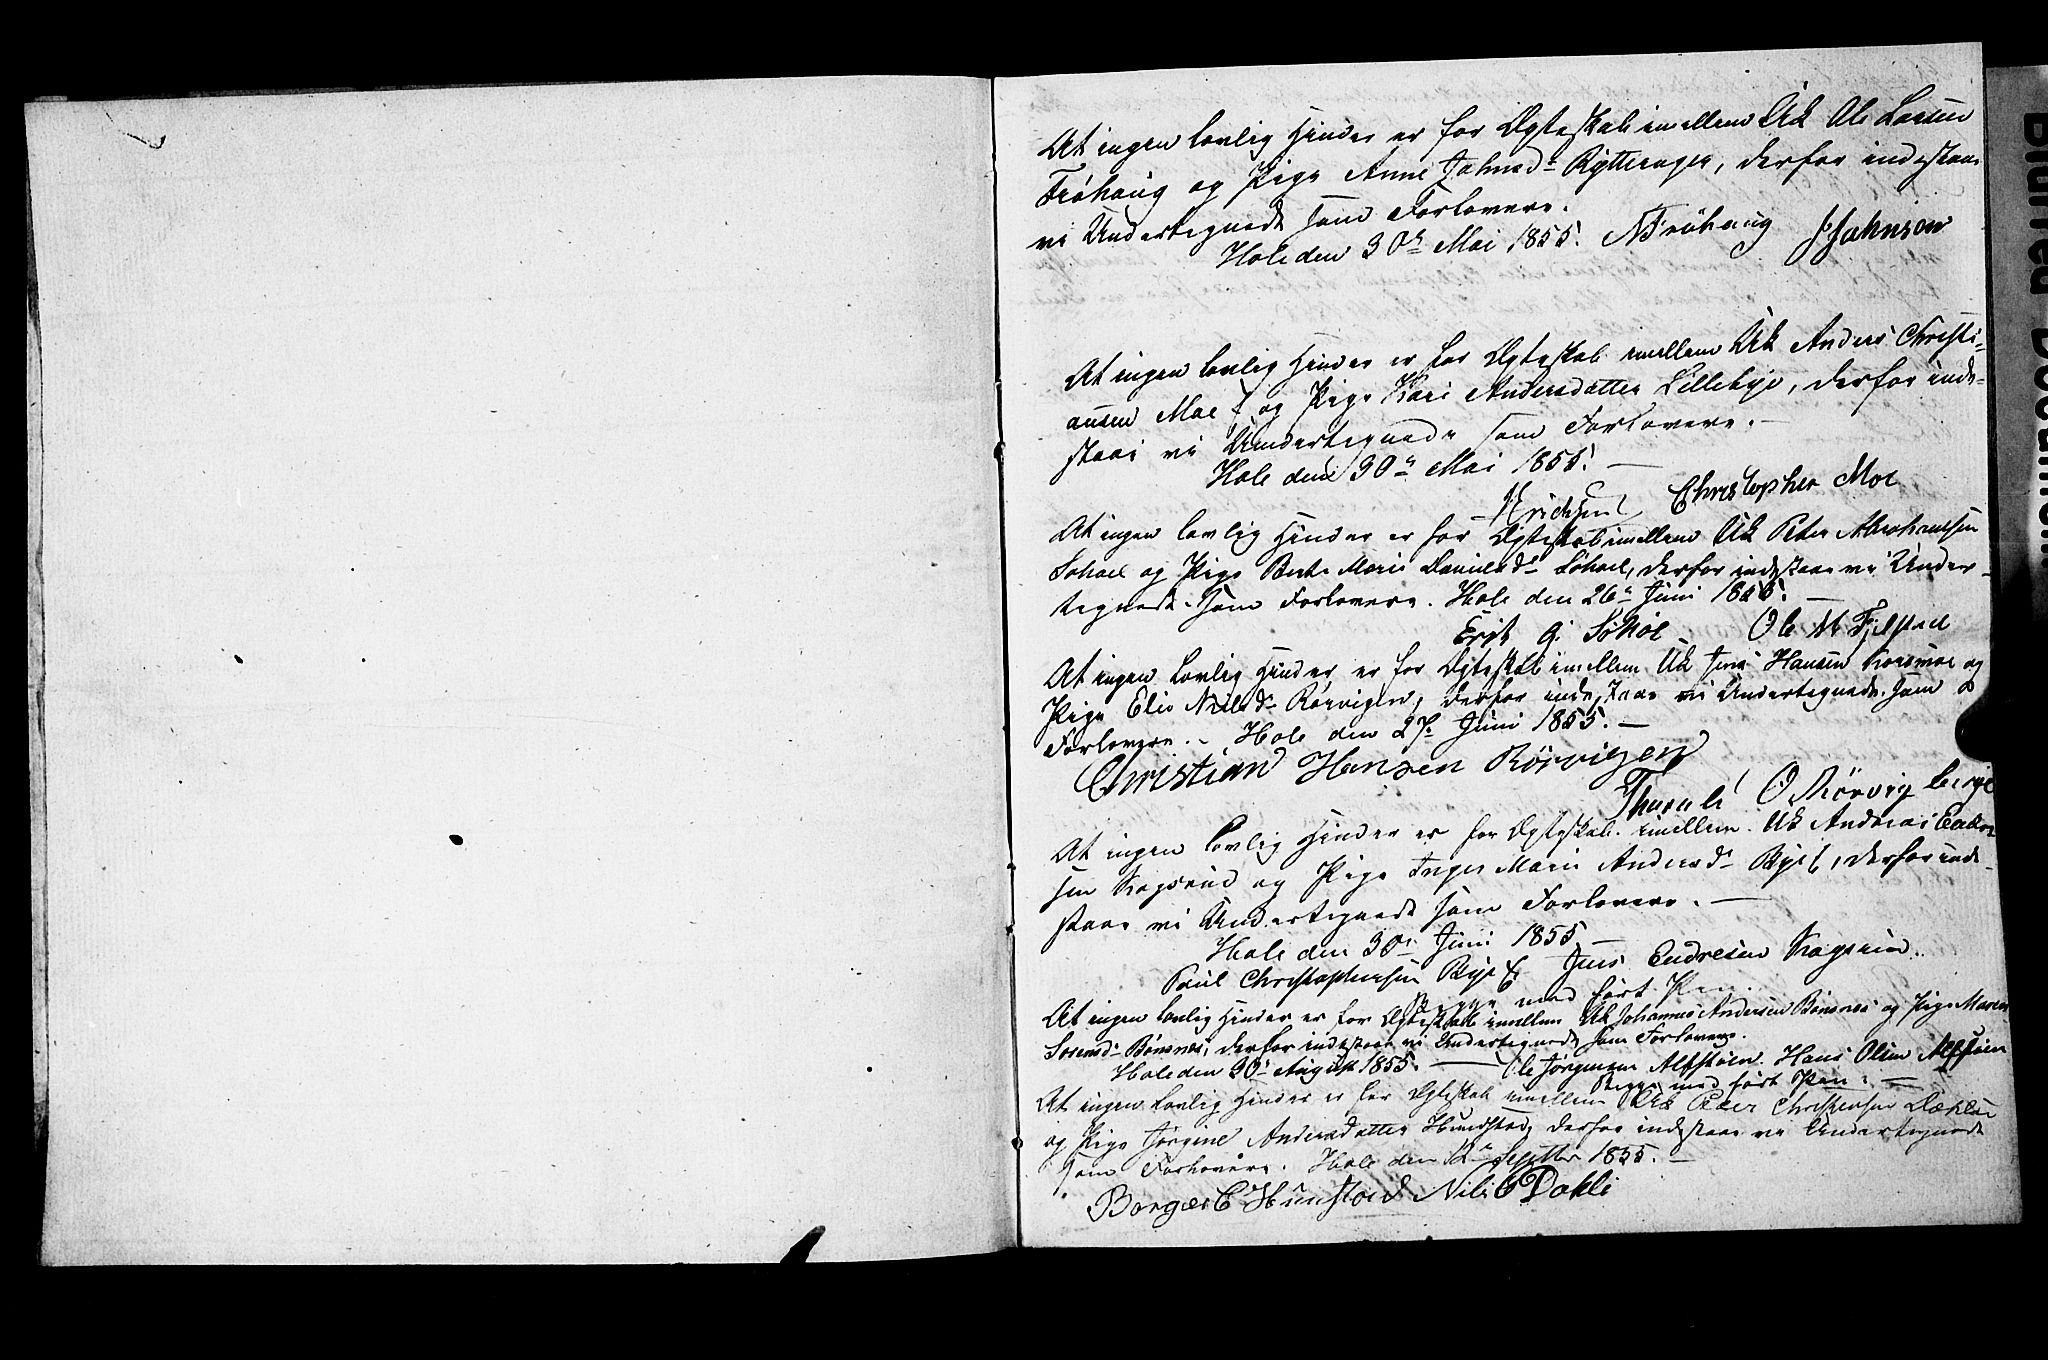 At ingen lovlig Hinder er for Ægteskab imellem Uk Ole Larsen
Frøhaug og Pige Anne Johnsd. Rytterager, derfor indestaae
vi Undertegnede som Forlovere.
Hole den 30te Mai 1855. NFrøhaug JJohnsen
At ingen lovlig Hinder er for Ægteskab imellem Uk Anders Christi-
ansen Moe og Pige Kari Andersdatter Lillebye, derfor inde-
staae vi Undertegnede som Forlovere.
Hole den 30te Mai 1855.
Christopher Moe
At ingen lovlig Hinder er for Ægteskab imellem Uk Peter Abrahamsen
Søhoel og Pige Berte Marie Danielsd. Søhoel, derfor indestaae vi Under-
tegnede som Forlovere. Hole den 26de Juni 1855.
Erik G. Søhol Ole M Fjelstad
At ingen lovlig Hinder er for Ægteskab imellem Uk Jens Hansen Korsmoe og
Pige Elis Nilsd. Rørvigen, derfor indestaae vi Undertegnede som
Forlovere. Hole den 27. Juni 1855.
Christian Hansen Rørvigen
O Rørvig berge
At ingen lovlig Hinder er for Ægteskab imellem Uk Andreas Endre-
sen Kagsrud og Pige Inger Marie Andersd. Bye, derfor inde-
staae vi Undertegnede som Forlovere.
Hole den 30te Juni 1855
Paul Christophersen Bye Jens Endresen Kagsrud.
Begge med ført Pen.
At ingen lovlig Hinder er for Ægteskab imellem Uk Johannes Andersen Bønsnes og Pige Maren
Sørensd. Bønsnes, derfor indestaae vi Undertegnede som Forlovere.
Hole den 30. August 1855. Ole Jørgensen Alfstøen. Hans Olsen Alfstøen
Begge med ført Pen.
At ingen lovlig Hinder er for Ægteskab imellem Uk Peder Christensen
og Pige Jørgine Andersdatter Hundstad, derfor indestaae vi Undertegnede
som Forlovere. Hole den 12te Septbr 1855.
Borger C Hunstad Nils Dahli